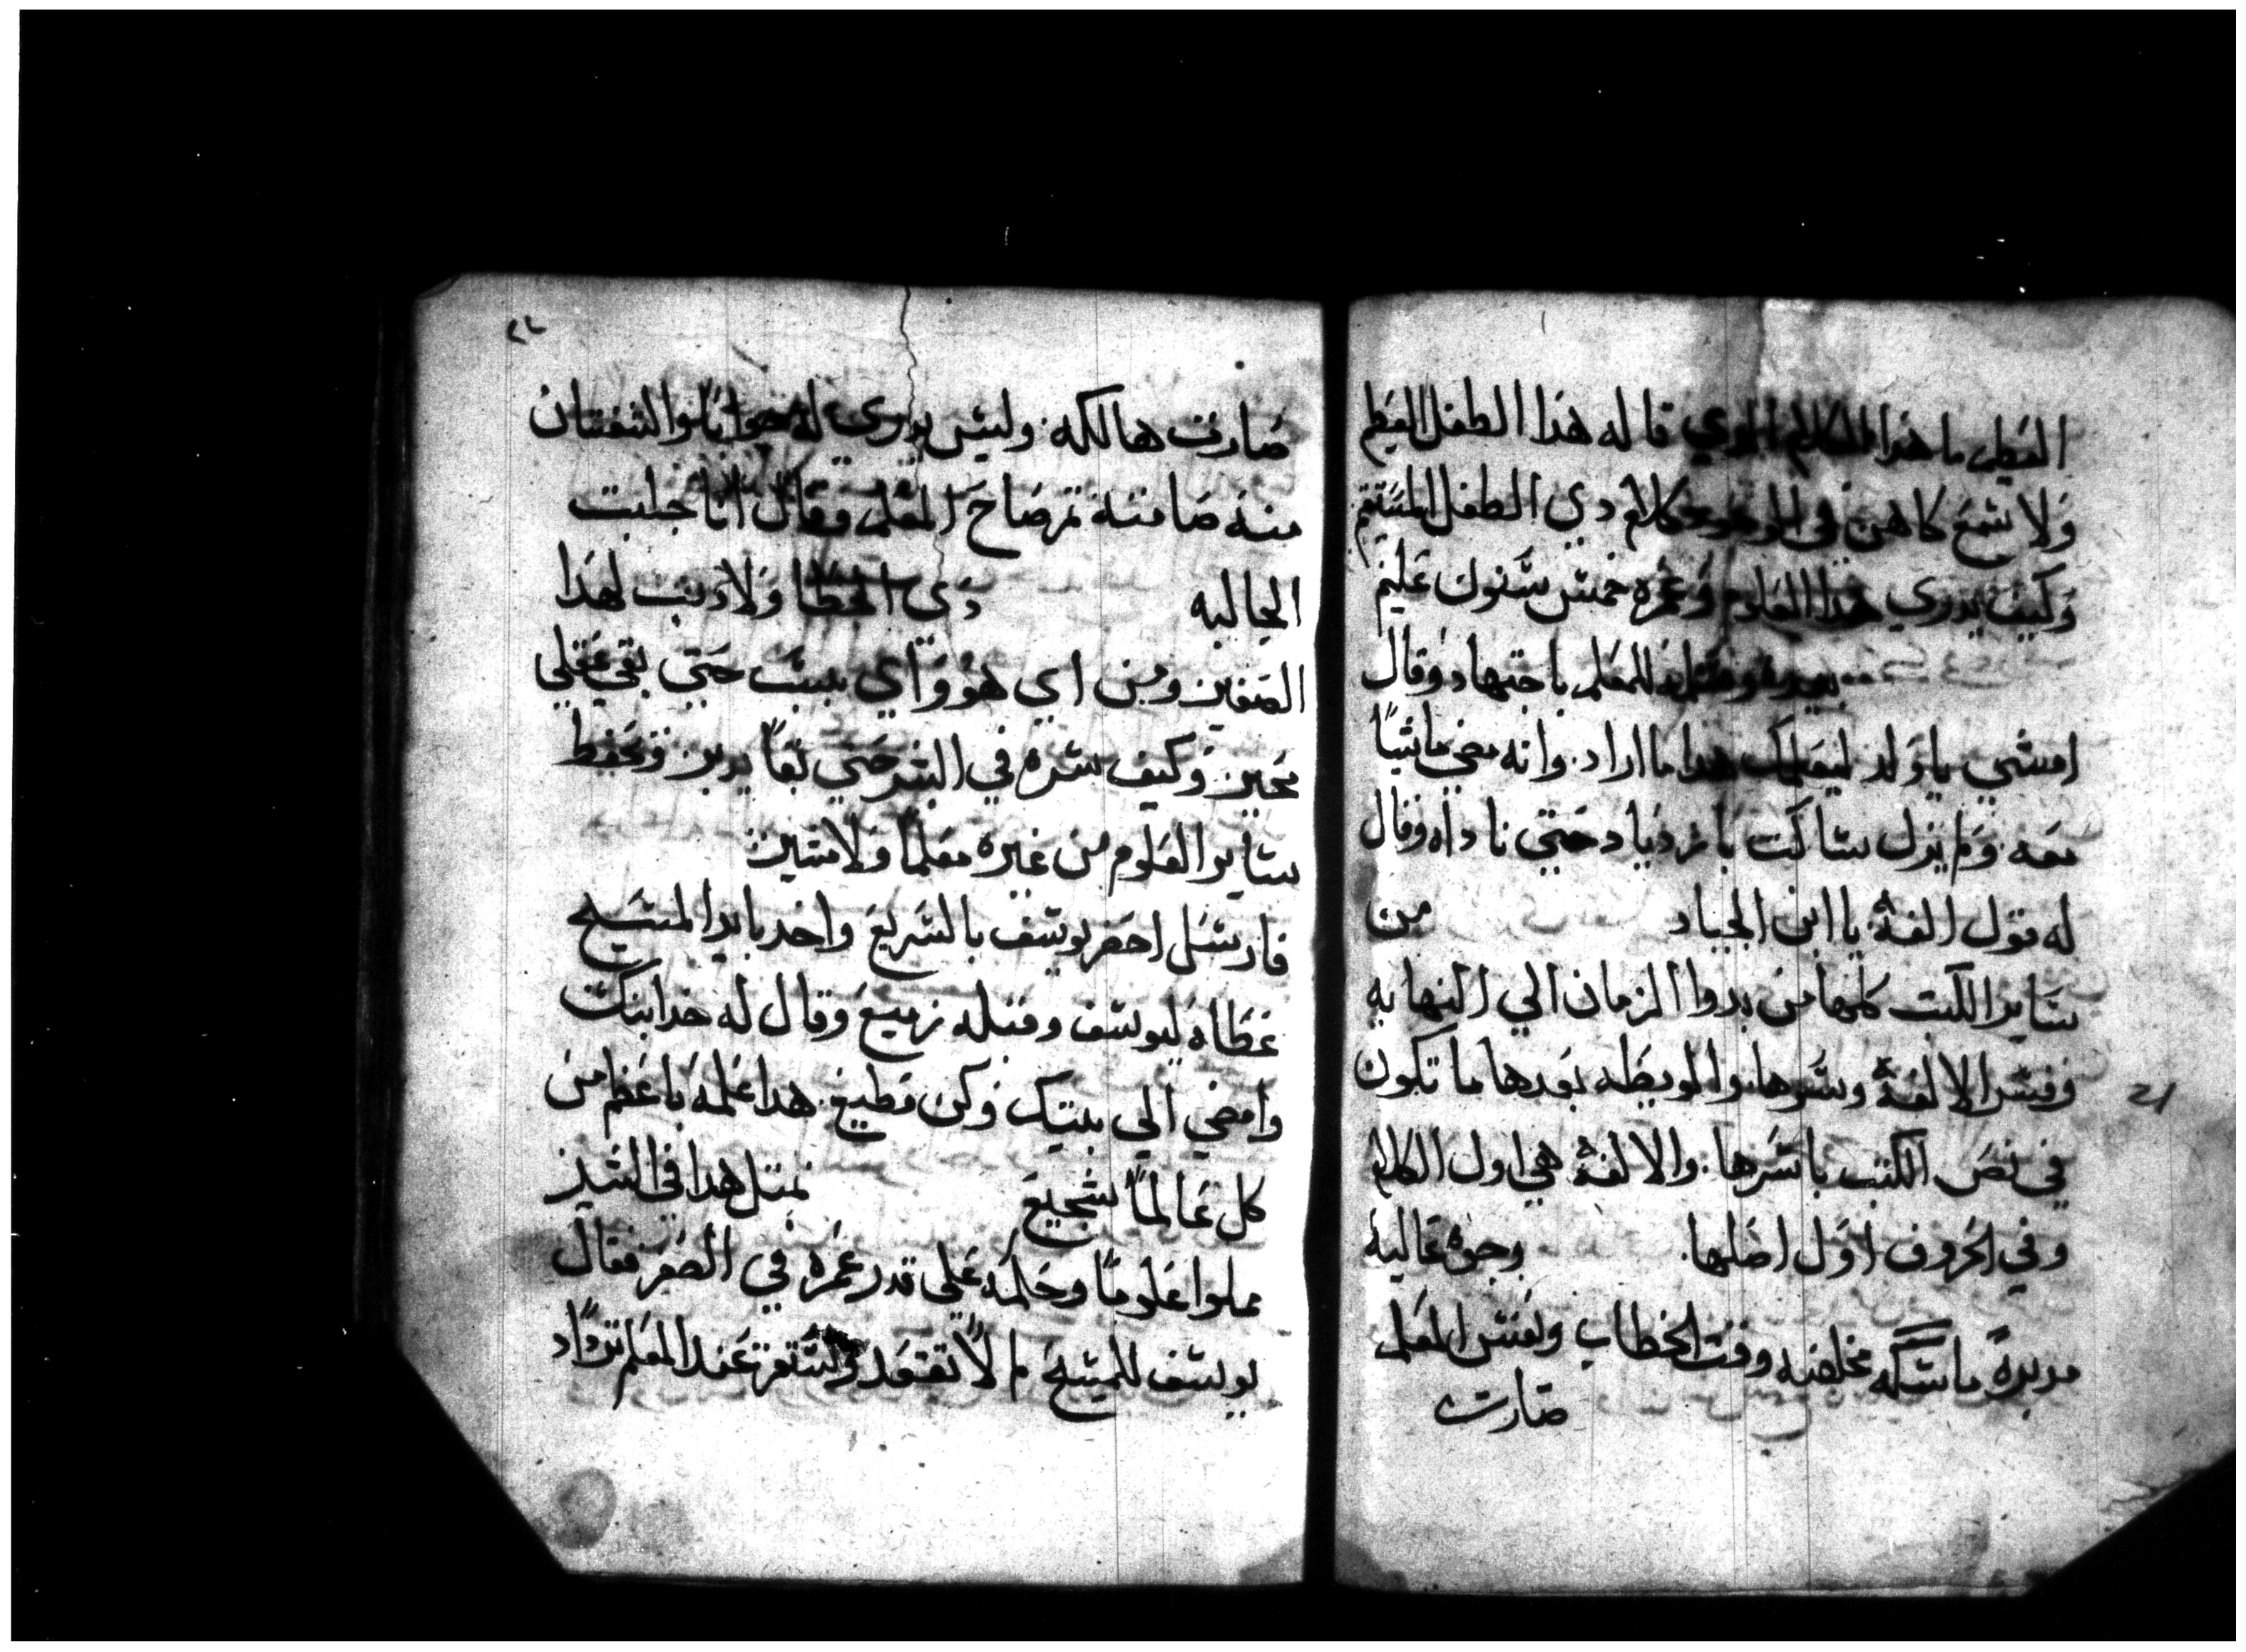 العظيم ما هدا الكلام الدي قاله هدا الطفل العظيم
ولا سمع كاهن في الوجود كلام دي الطفل المستقيم
وكيف يدري هدا العلوم وعمره خمس سنوات عليم
للمعلم باجتهاد وقال
امشي يا ولد ليعلمك هدا ما اراد وانه مضي ماشيًا
معه ولم يزل ساكت بازدياد حتي ناداه وقال
له قول الفة يا ابن الجياد من
ساير الكتب كلها من بدوا الزمان الي النهايه
وفسر الالفة وسرها والوبطه بعدها ما تكون
في نص الكتب باسرها والالفة هي اول الكلام
وفي الحروف اول اصلها وجوة عالية
مدبرة ماسكه مخلصه وقت الخطاب ونفس المعلم
صارت
21
٢٢
صارت هالكه وليس يدري له جوابًا والشفتان
منه صامته تم صاح المعلم وقال انا جلبت
الجاليه دي الخطا ولا دنب لهدا
الصغير ومن اي هو واي سبب حتي بقي عقلي
محير وكيف سره في البشر حتي بقا يدبر ويحفظ
ساير العلوم من غيره معلمًا ولا مشير
فارسل احضر يوسف بالسريع واخد بايد المسيح
عطاه ليوسف وقبله زميع وقال له خد ابنك
وامضي الي بيتك وكن مطيع هدا علمه باعظم من
كل عالمًا شجيع تمتل هدا في السير
مملوا علومًا وحلمه علي قدر عمره في الصغر فقال
يوسف للمسيح لم لا تقعد وتستقر عند المعلم تزداد